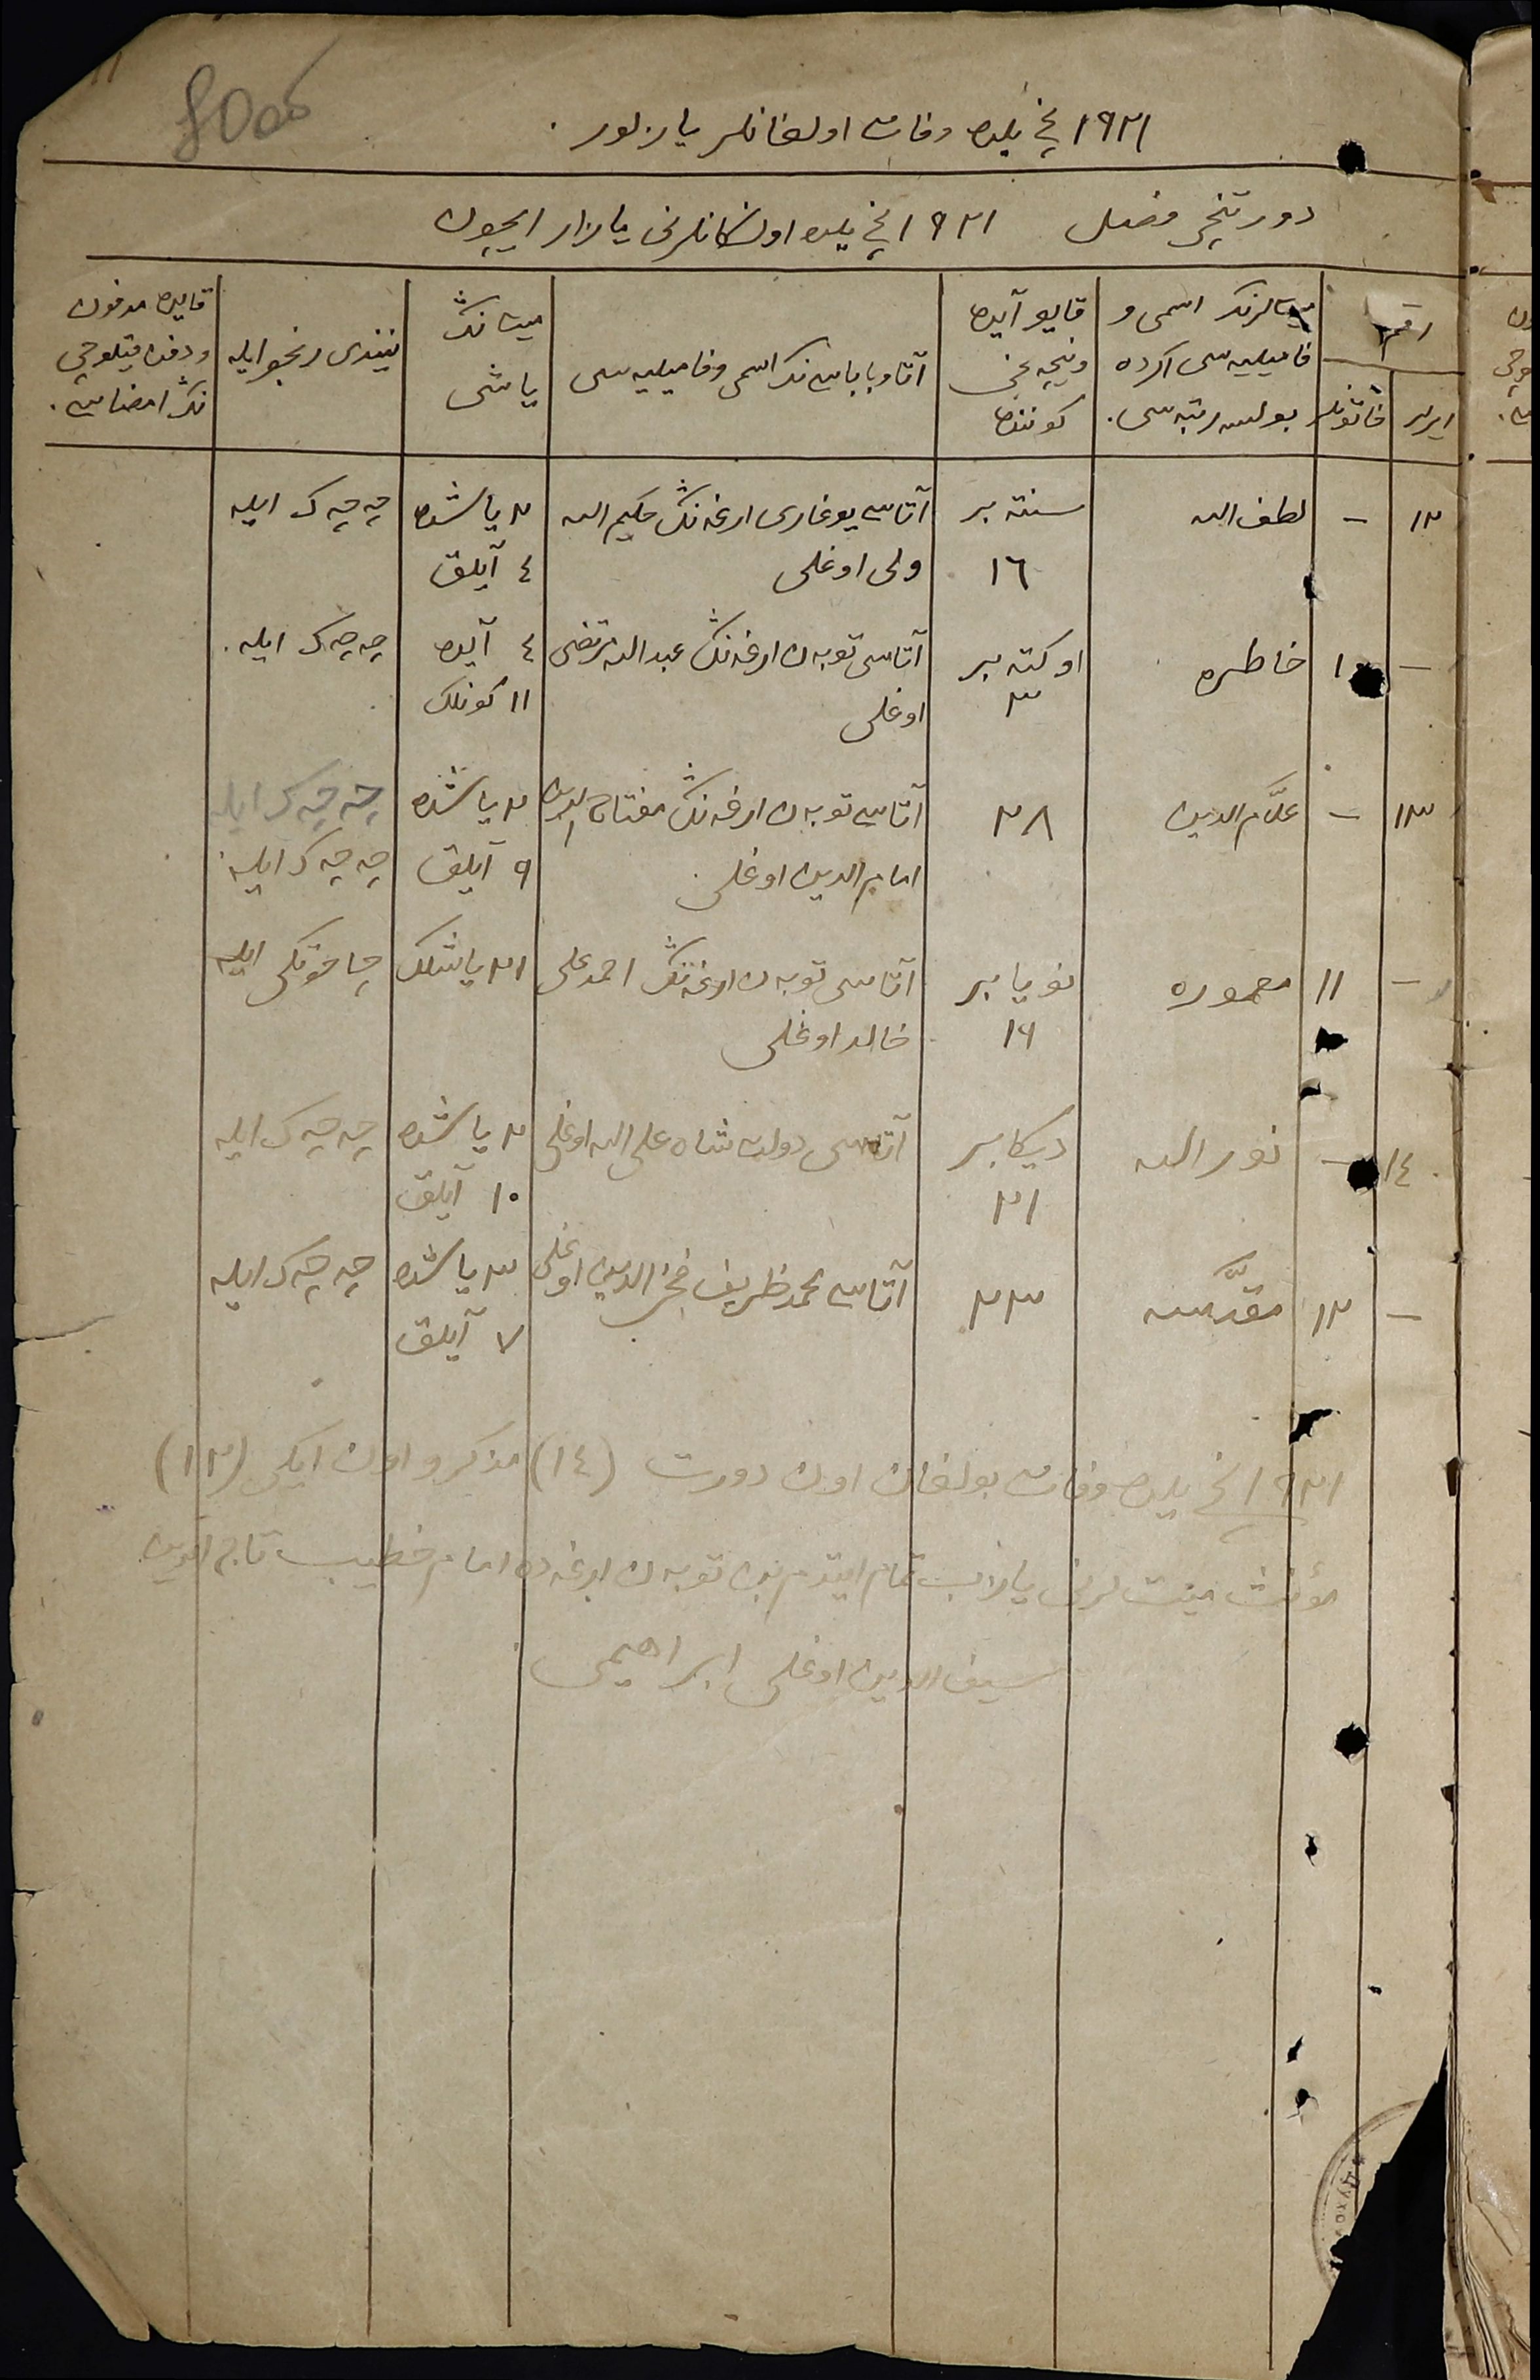 ١٩٢١ نچی یلده وفات اولغانلر یازلور.
دورتنچی فصل ١٩٢١ نچی یلده اولگانلرنی یازار ایچون
رقم
ایرلر
خاتونلر
میتلرنڭ اسمی و
فامیلیه‌سی اگرده
بولسه رتبه‌سی.
قایو آیده
ونیچه نچی
کوننده
آتا وباباسی‌نڭ اسمی وفامیلیه‌سی
میت‌نڭ
یاشی
نیندی رنجو ایله
قایده مدفون
ودفن قیلوچی
نڭ امضاسی.
١٢ - لطف الله سنته‌بر ١٦ آتاسی یوغاری ارغه‌نڭ حکیم الله ولی اوغلی ٢ یاشده ٤ آیلق چه‌چه‌ک ایله
- ١٠ خاطره اوکته‌بر ٣ آتاسی توبه‌ن ارغه‌نڭ عبدالله مرتضی اوغلی ٤ آیده ١١ کونلک چه‌چه‌ک ایله.
١٣ - علّام الدین ٢٨ آتاسی توبه‌ن ارغه‌نڭ مفتاح الدین امام الدین اوغلی. ٢ یاشده ٩ آیلق چه‌چه‌ک ایله
چه‌چه‌ک ایله
- ١١ معموره نویابر ١٦ آتاسی توبه‌ن ارغه‌نڭ احمدعلی خالد اوغلی ٢١ یاشلک چاخوتکی ایله
١٤ - نورالله دیکابر ٢١ آتاسی دولت‌شاه علی الله اوغلی ٢ یاشده ١٠ آیلق چه‌چه‌ک ایله
- ١٢ مقدّسه ٢٣ آتاسی محمدظریف فخرالدین اوغلی ٣ یاشده ٧ آیلق چه‌چه‌ک ایله
١٩٢١ نچی یلده وفات بولغان اون دورت (١٤) مذکر و اون ایکی (١٢)
مؤنث میت‌لرنی یازاب تمام ایتدم بن توبه‌ن ارغه‌ده امام خطیب تاج الدین
سیف الدین اوغلی ابراهیمی